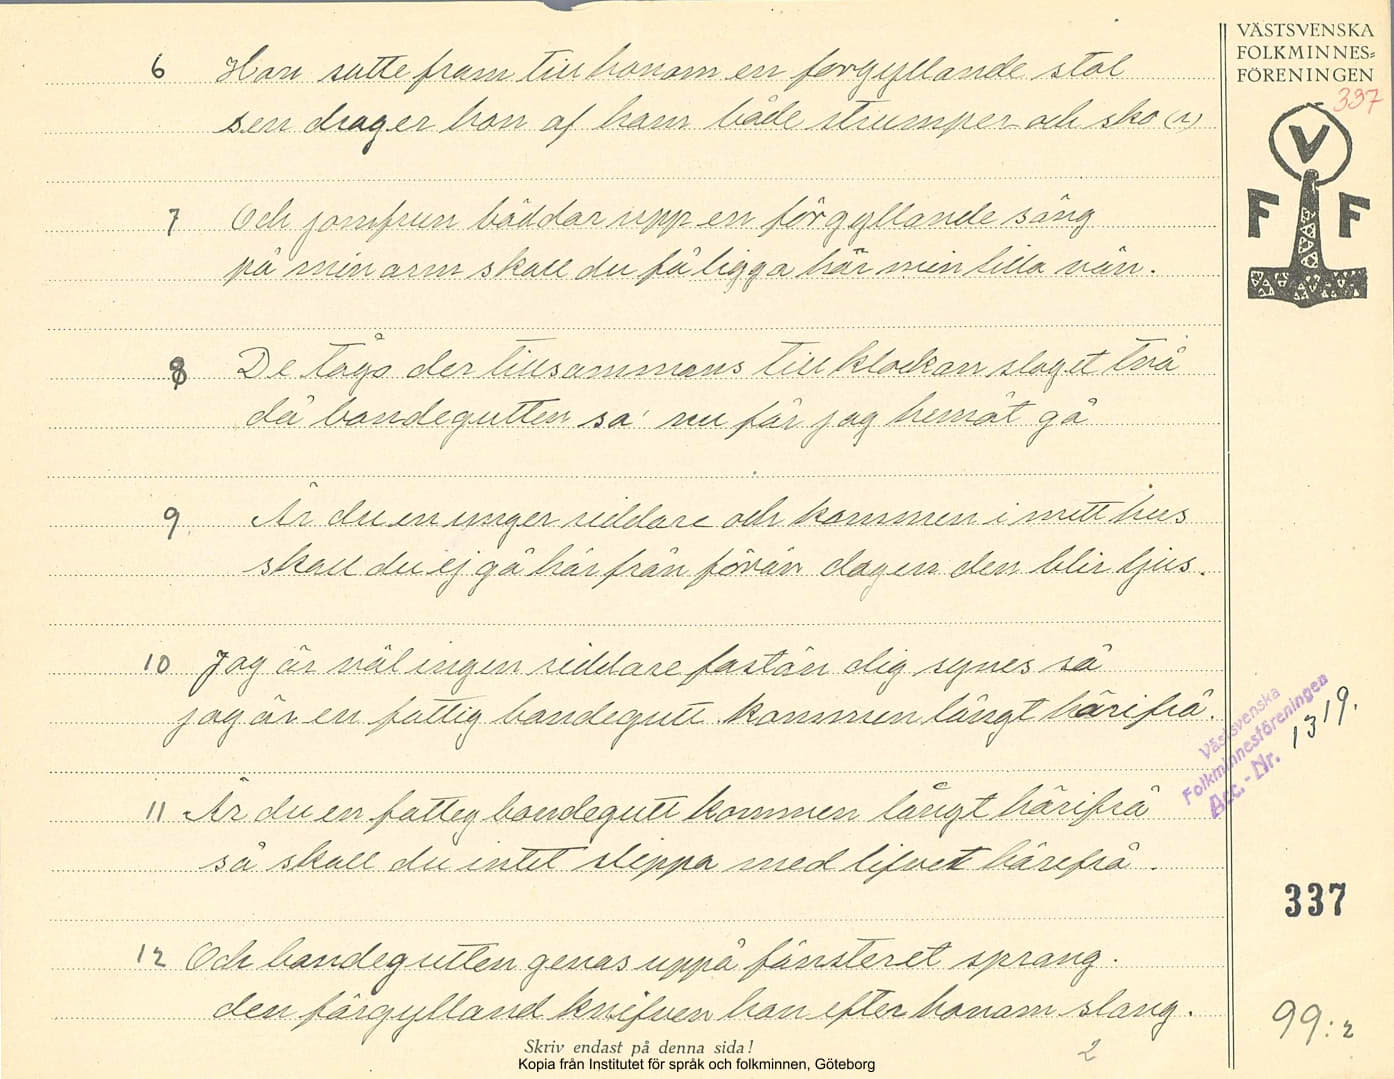 VÄSTSVENSKA
FOLKMINNES-
FÖRENINGEN
337
V
F F
6 Hon satte fram till honom en förgyllande stol
sen drager hon af ham både strumper och sko (r)
7 Och jomfrun bäddar upp en förgyllande säng
på min arm skall du få ligga här min lilla vän.
8 De lågo der tillsammans till klockan slaget två
då bondegutten sa' nu får jag hemåt gå
9 Är du en unger riddare och kommen i mitt hus
skall du ej gå härfrån förän dagen den blir ljus.
10 Jag är väl ingen riddare fastän dig synes så
jag är en fattig bondegutt kommen långt härifrå.
11 Är du en fatteg bondegutt kommen långt härifrå
så skall du intet slippa med lifvet härefrå.
12 Och bondegutten genas uppå fänsteret sprang.
den förgylland knifven hon efter honom slang.
Västsvenska
Folkminnesföreningen
Acc.-Nr. 1319.
337
99:2
2
Skriv endast på denna sida!
Kopia från Institutet för språk och folkminnen, Göteborg